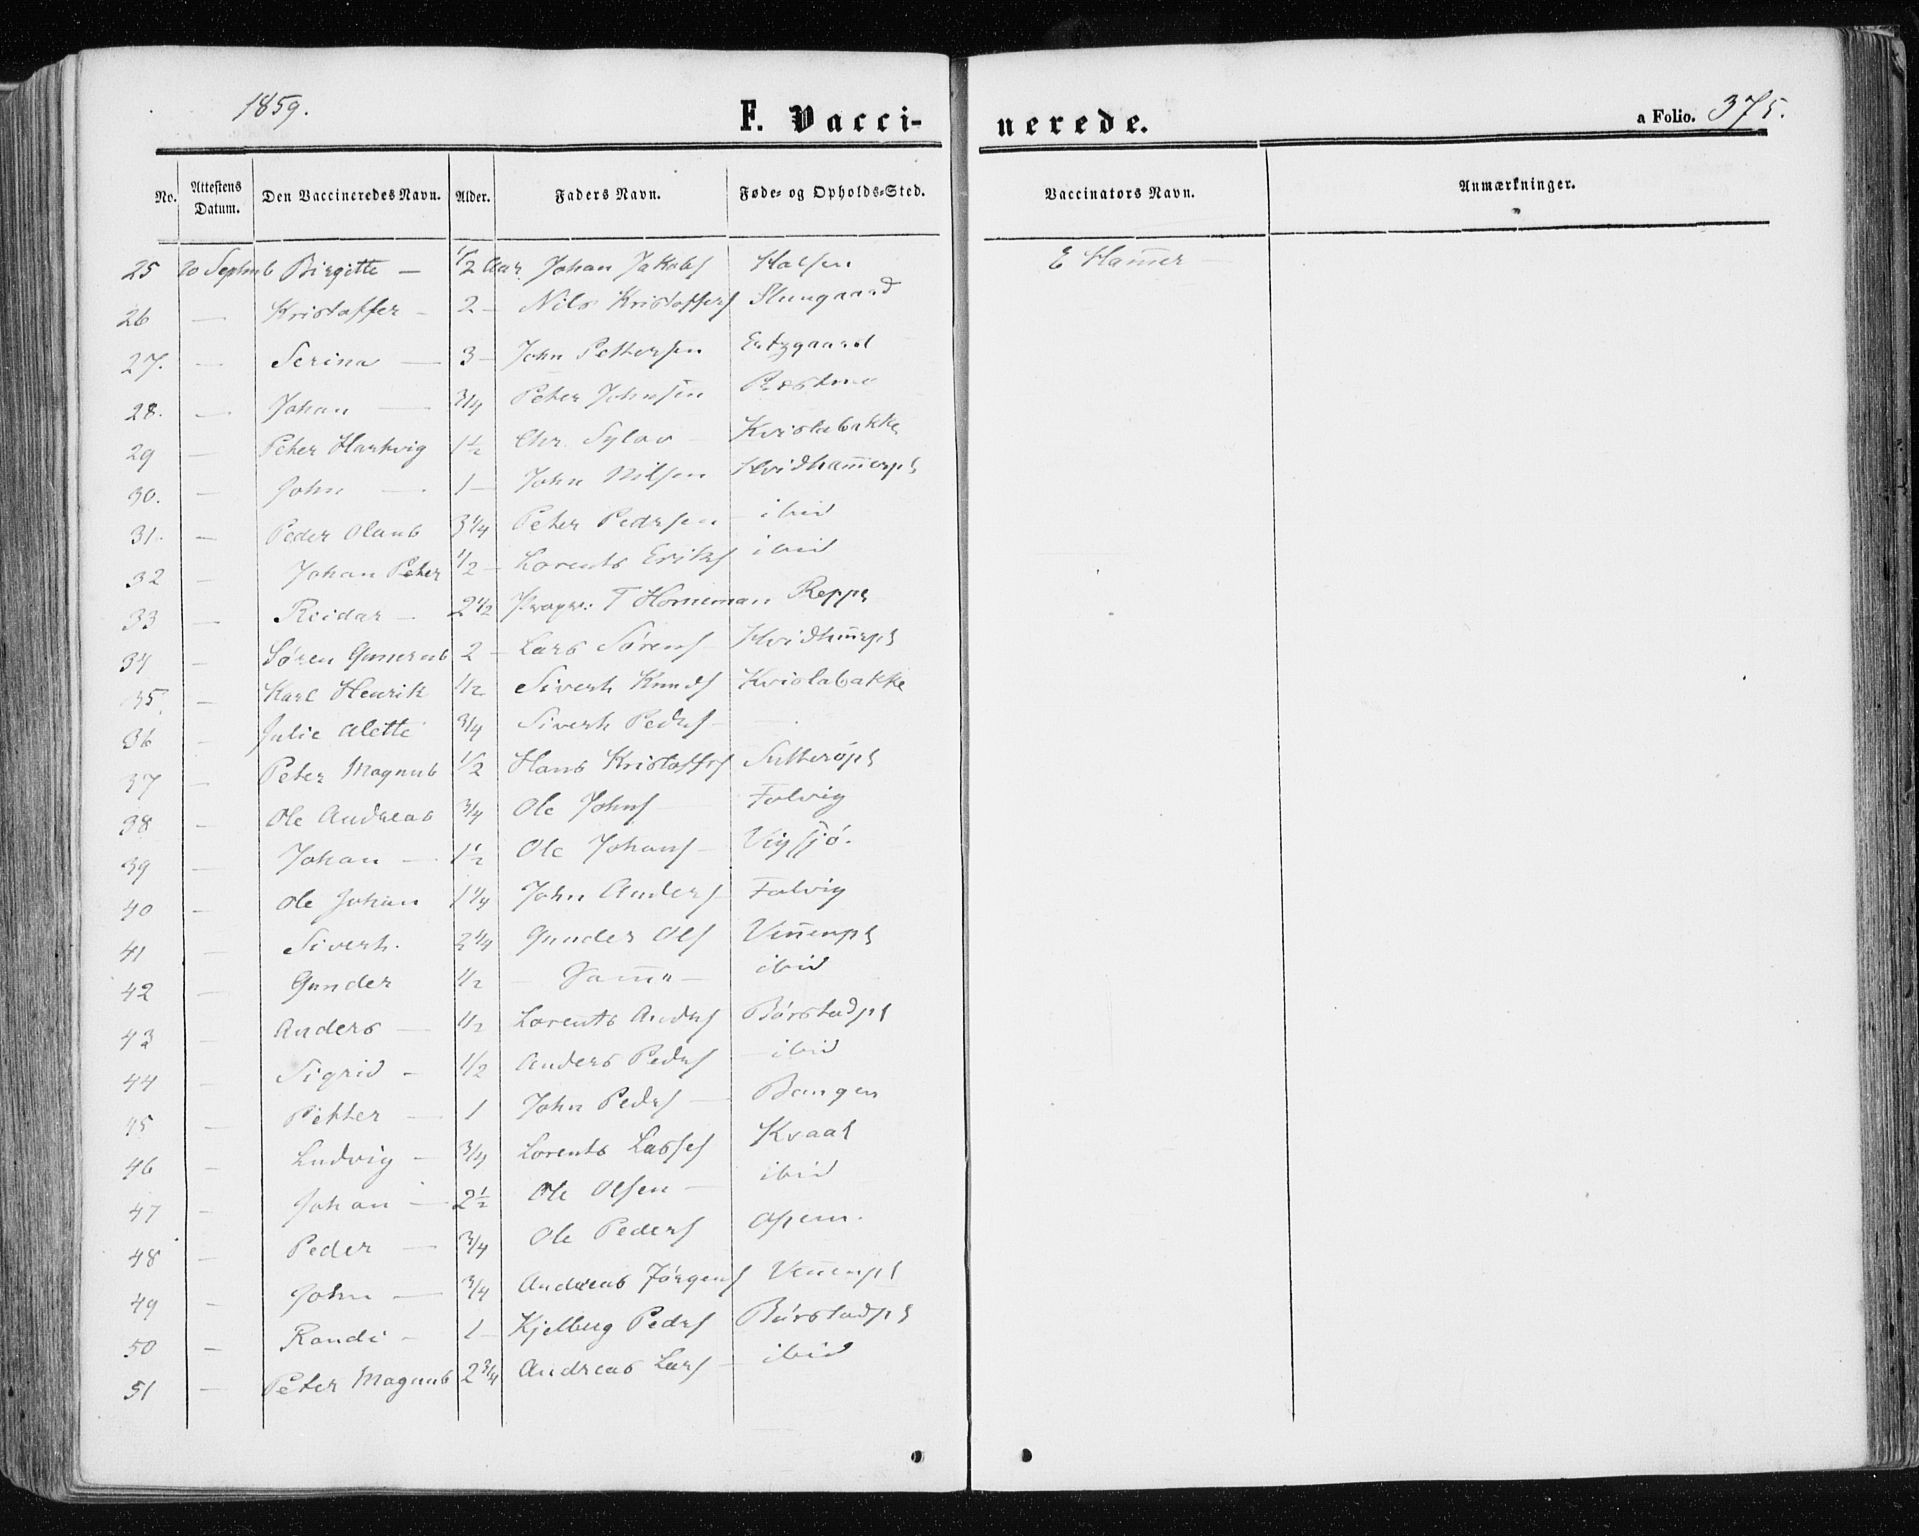 1859.
F. Vacci-
nerede.
a Folio. 375.
No. Attestens Datum. Den Vaccineredes Navn. Alder. Faders Navn. Føde- og Opholds-Sted. Vaccinators Navn. Anmærkninger.
25 20 Septmb Birgitte — 1/2 Aar Johan Jakobs Halsen E Ham̅er —
26 — Kristoffer — 2 — Nils Kristoffers
27. — Serina — 3 — John Pettersen
28. — Johan — 3/4 Peter Johnsen
29 — Peter Hartvig 1 1/2 Chr. Sylov — Kvislabakke
30. — John — 1 — John Nilsen Hvidham̅erpl
31. — Peder Olaus 3 1/4 Peter Pedrsen — ibid
32 — Johan Peter 1/2 — Lorents Eriks ibid
33 — Reidar — 2 1/2 Propr: T Horneman Reppe
34 — Søren Gunerus 2 — Lars Sørens Hvidhm̅rpl
35. — Karl Henrik 1/2 Sivert Knuds Kvislabakke
36 — Julie Alette 3/4 Sivert Pedrs — —
37 — Peter Magnus 1/2 Hans Kristoffs Sutterøpl
38 — Ole Andreas 3/4 Ole Johns — Folvig
39 — Johan — 1 1/2 Ole Johans — Vigsjø.
40 — Ole Johan 1 1/4 John Anders — Folvig
41 — Sivert. 2 1/4 Gunder Ols Ven̅enpl
42 — Gunder 1/2 — Sam̅e — ibid
43 — Anders — 1/2 Lorents Andrs Børstadpl
44 — Sigrid — 1/2 Anders Pedrs — ibid
45 — Petter — 1 John Pedrs — Bangen
46 — Ludvig — 3/4 Lorents Lasses Kvaal
47 — Johan — 2 1/2 Ole Olsen — ibid
48 — Peder — 3/4 Ole Peders
49 — John — 3/4 Andreas Jørgens Ven̅enpl
50 — Randi — 1 — Kjelberg Pedrs Børstadpl
51 — Peter Magnus 2 3/4 Andreas Lars — ibid